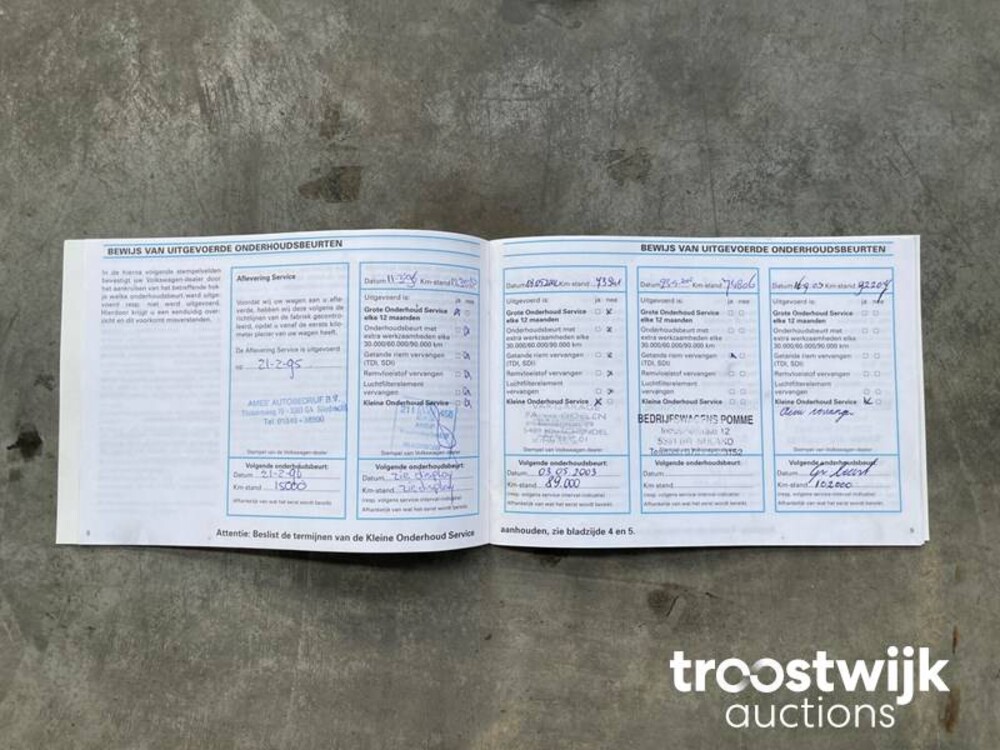 BEWIJS VAN UITGEVOERDE ONDERHOUDSBEURTEN
In de hierna volgende stempelvelden
bevestigt uw Volkswagen-dealer door
het aankruisen van het betreffende hok-
je welke onderhoudsbeurt werd uitge-
voerd resp. niet werd uitgevoerd.
Hierdoor krijgt u een eenduidig over-
zicht en dit voorkomt misverstanden.
Aflevering Service
Voordat wij uw wagen aan u afle-
verde, hebben wij deze volgens de
richtlijnen van de fabriek gecontro-
leerd, opdat u vanaf de eerste kilo-
meter plezier van uw wagen heeft.
De Aflevering Service is uitgevoerd
op 21-2-95
AMES' AUTOBEDRIJF B.V.
Stempel van de Volkswagen-dealer
Volgende onderhoudsbeurt:
Datum 21-2-96
Km-stand 15000
Afhankelijk van wat het eerst wordt bereikt.
Datum Km-stand
Uitgevoerd is: ja nee
Grote Onderhoud Service
elke 12 maanden
Onderhoudsbeurt met
extra werkzaamheden elke
30.000/60.000/90.000 km
Getande riem vervangen
(TDI, SDI)
Remvloeistof vervangen
Luchtfilterelement
vervangen
Kleine Onderhoud Service
Stempel van Volkswagen-dealer
Volgende onderhoudsbeurt:
Datum zie display
Km-stand zie display
(resp. volgens service-interval-indicatie)
Afhankelijk van wat het eerst wordt bereikt.
8
Attentie: Beslist de termijnen van de Kleine Onderhoud Service
BEWIJS VAN UITGEVOERDE ONDERHOUDSBEURTEN
Datum Km-stand
Uitgevoerd is: ja nee
Grote Onderhoud Service
elke 12 maanden
Onderhoudsbeurt met
extra werkzaamheden elke
30.000/60.000/90.000 km
Getande riem vervangen
(TDI, SDI)
Remvloeistof vervangen
Luchtfilterelement
vervangen
Kleine Onderhoud Service
Stempel van Volkswagen-dealer
Volgende onderhoudsbeurt:
Datum 03.05.2003
Km-stand 89.000
(resp. volgens service-interval-indicatie)
Afhankelijk van wat het eerst wordt bereikt.
Datum Km-stand 74806
Uitgevoerd is: ja nee
Grote Onderhoud Service
elke 12 maanden
Onderhoudsbeurt met
extra werkzaamheden elke
30.000/60.000/90.000 km
Getande riem vervangen
(TDI, SDI)
Remvloeistof vervangen
Luchtfilterelement
vervangen
Kleine Onderhoud Service
BEDRIJFSWAGENS POMME
Stempel van Volkswagen-dealer
Volgende onderhoudsbeurt:
Datum
Km-stand
(resp. volgens service-interval-indicatie)
Afhankelijk van wat het eerst wordt bereikt.
Datum 16 9 03 Km-stand 92209
Uitgevoerd is: ja nee
Grote Onderhoud Service
elke 12 maanden
Onderhoudsbeurt met
extra werkzaamheden elke
30.000/60.000/90.000 km
Getande riem vervangen
(TDI, SDI)
Remvloeistof vervangen
Luchtfilterelement
vervangen
Kleine Onderhoud Service
Stempel van Volkswagen-dealer
Volgende onderhoudsbeurt:
Datum Gr beurt
Km-stand 102000
(resp. volgens service-interval-indicatie)
Afhankelijk van wat het eerst wordt bereikt.
aanhouden, zie bladzijde 4 en 5.
troostwijk
auctions